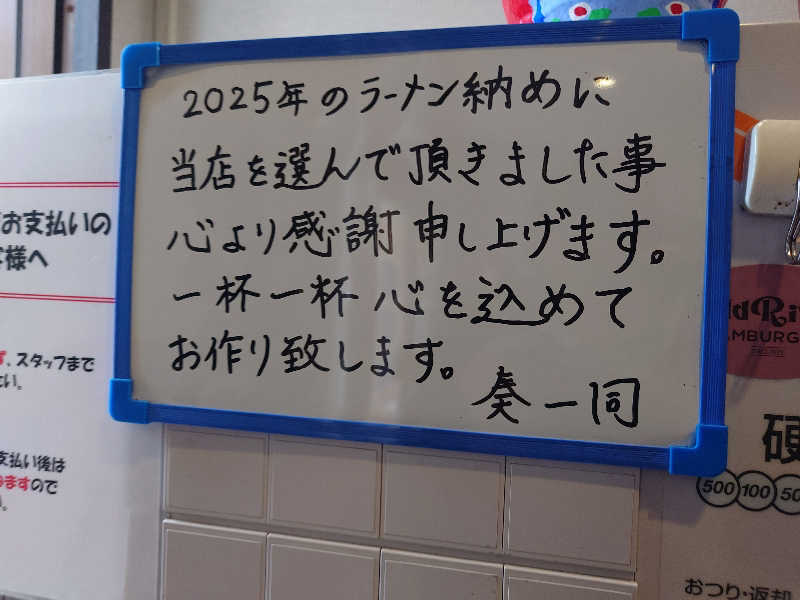 2025年のラーメン納めに
当店を選んで頂きました事
心より感謝申し上げます。
一杯一杯心を込めて
お作り致します。
奏一同
お支払いの
様へ
、スタッフまで
い。
支払い後は
ますので
MBURG
硬
500 100 50
おつり・返却